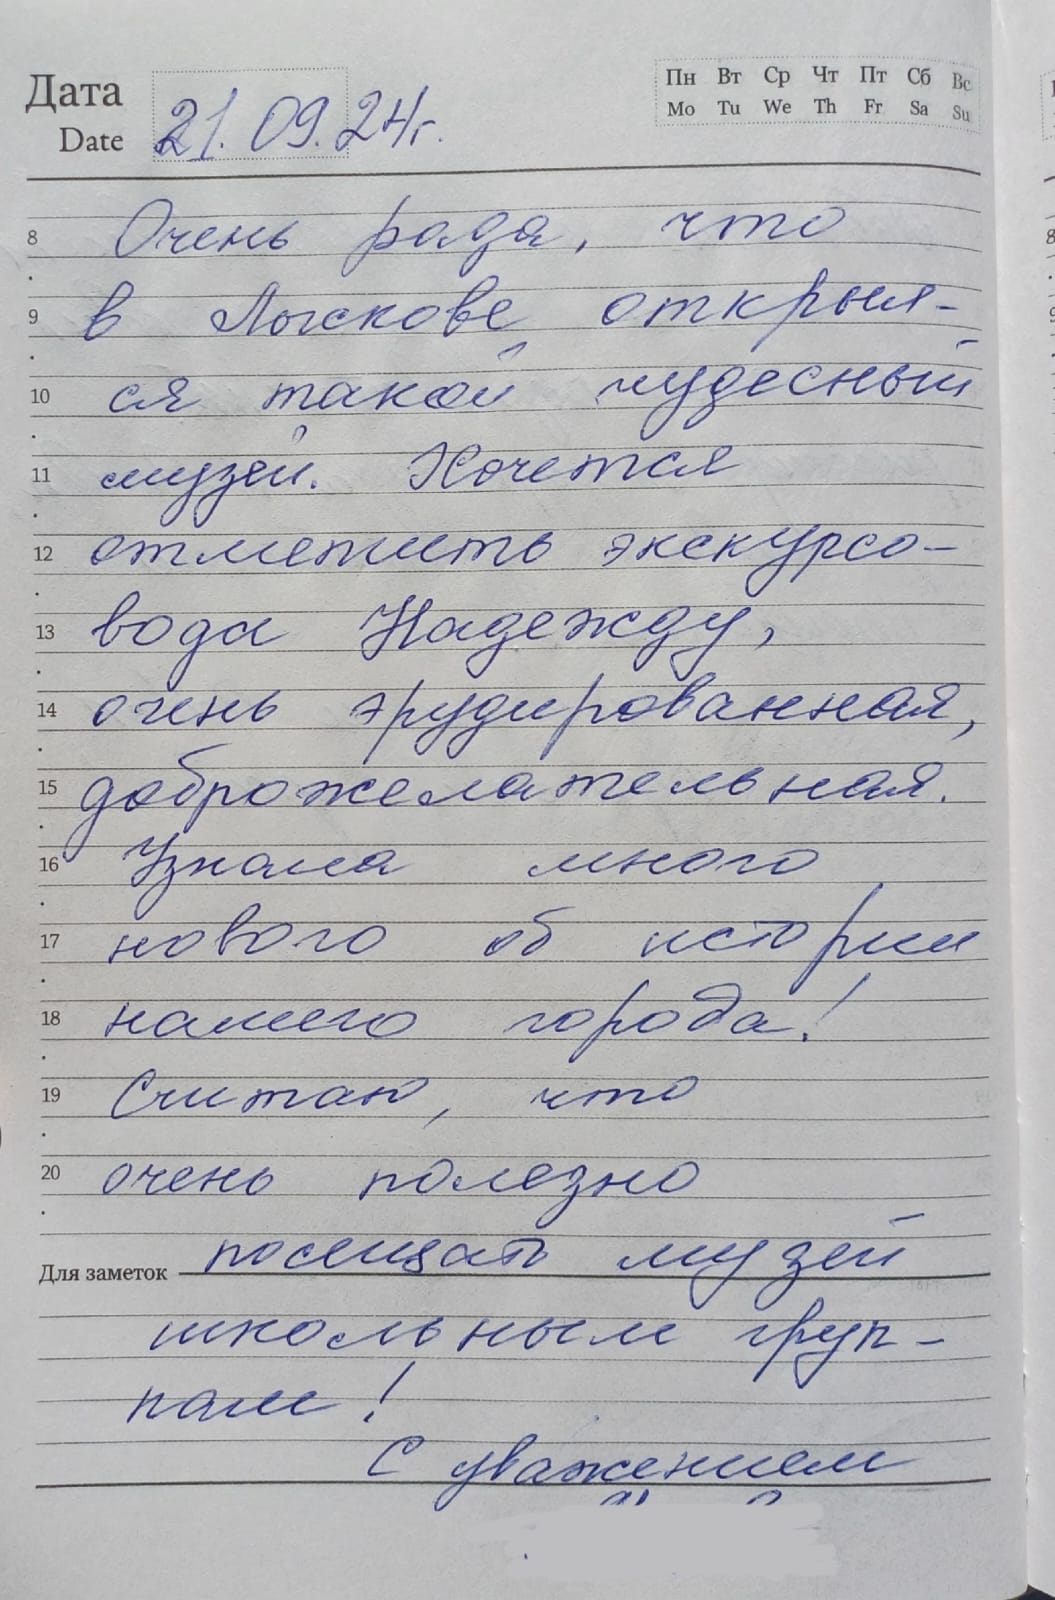 Дата
Date
21.09.24г.
Пн Вт Ср Чт Пт Сб Вс
Mo Tu We Th Fr Sa Su
8 Очень рада, что
9 в Лыскове открыл-
10 ся такой чудесный
11 музей. Хочется
12 отметить экскурсо-
13 вода Надежду,
14 очень эрудированная,
15 доброжелательная.
16 Узнала много
17 нового об истории
18 нашего города!
19 Считаю, что
20 очень полезно
Для заметок посещать музей
школьным груп-
пам!
С уважением